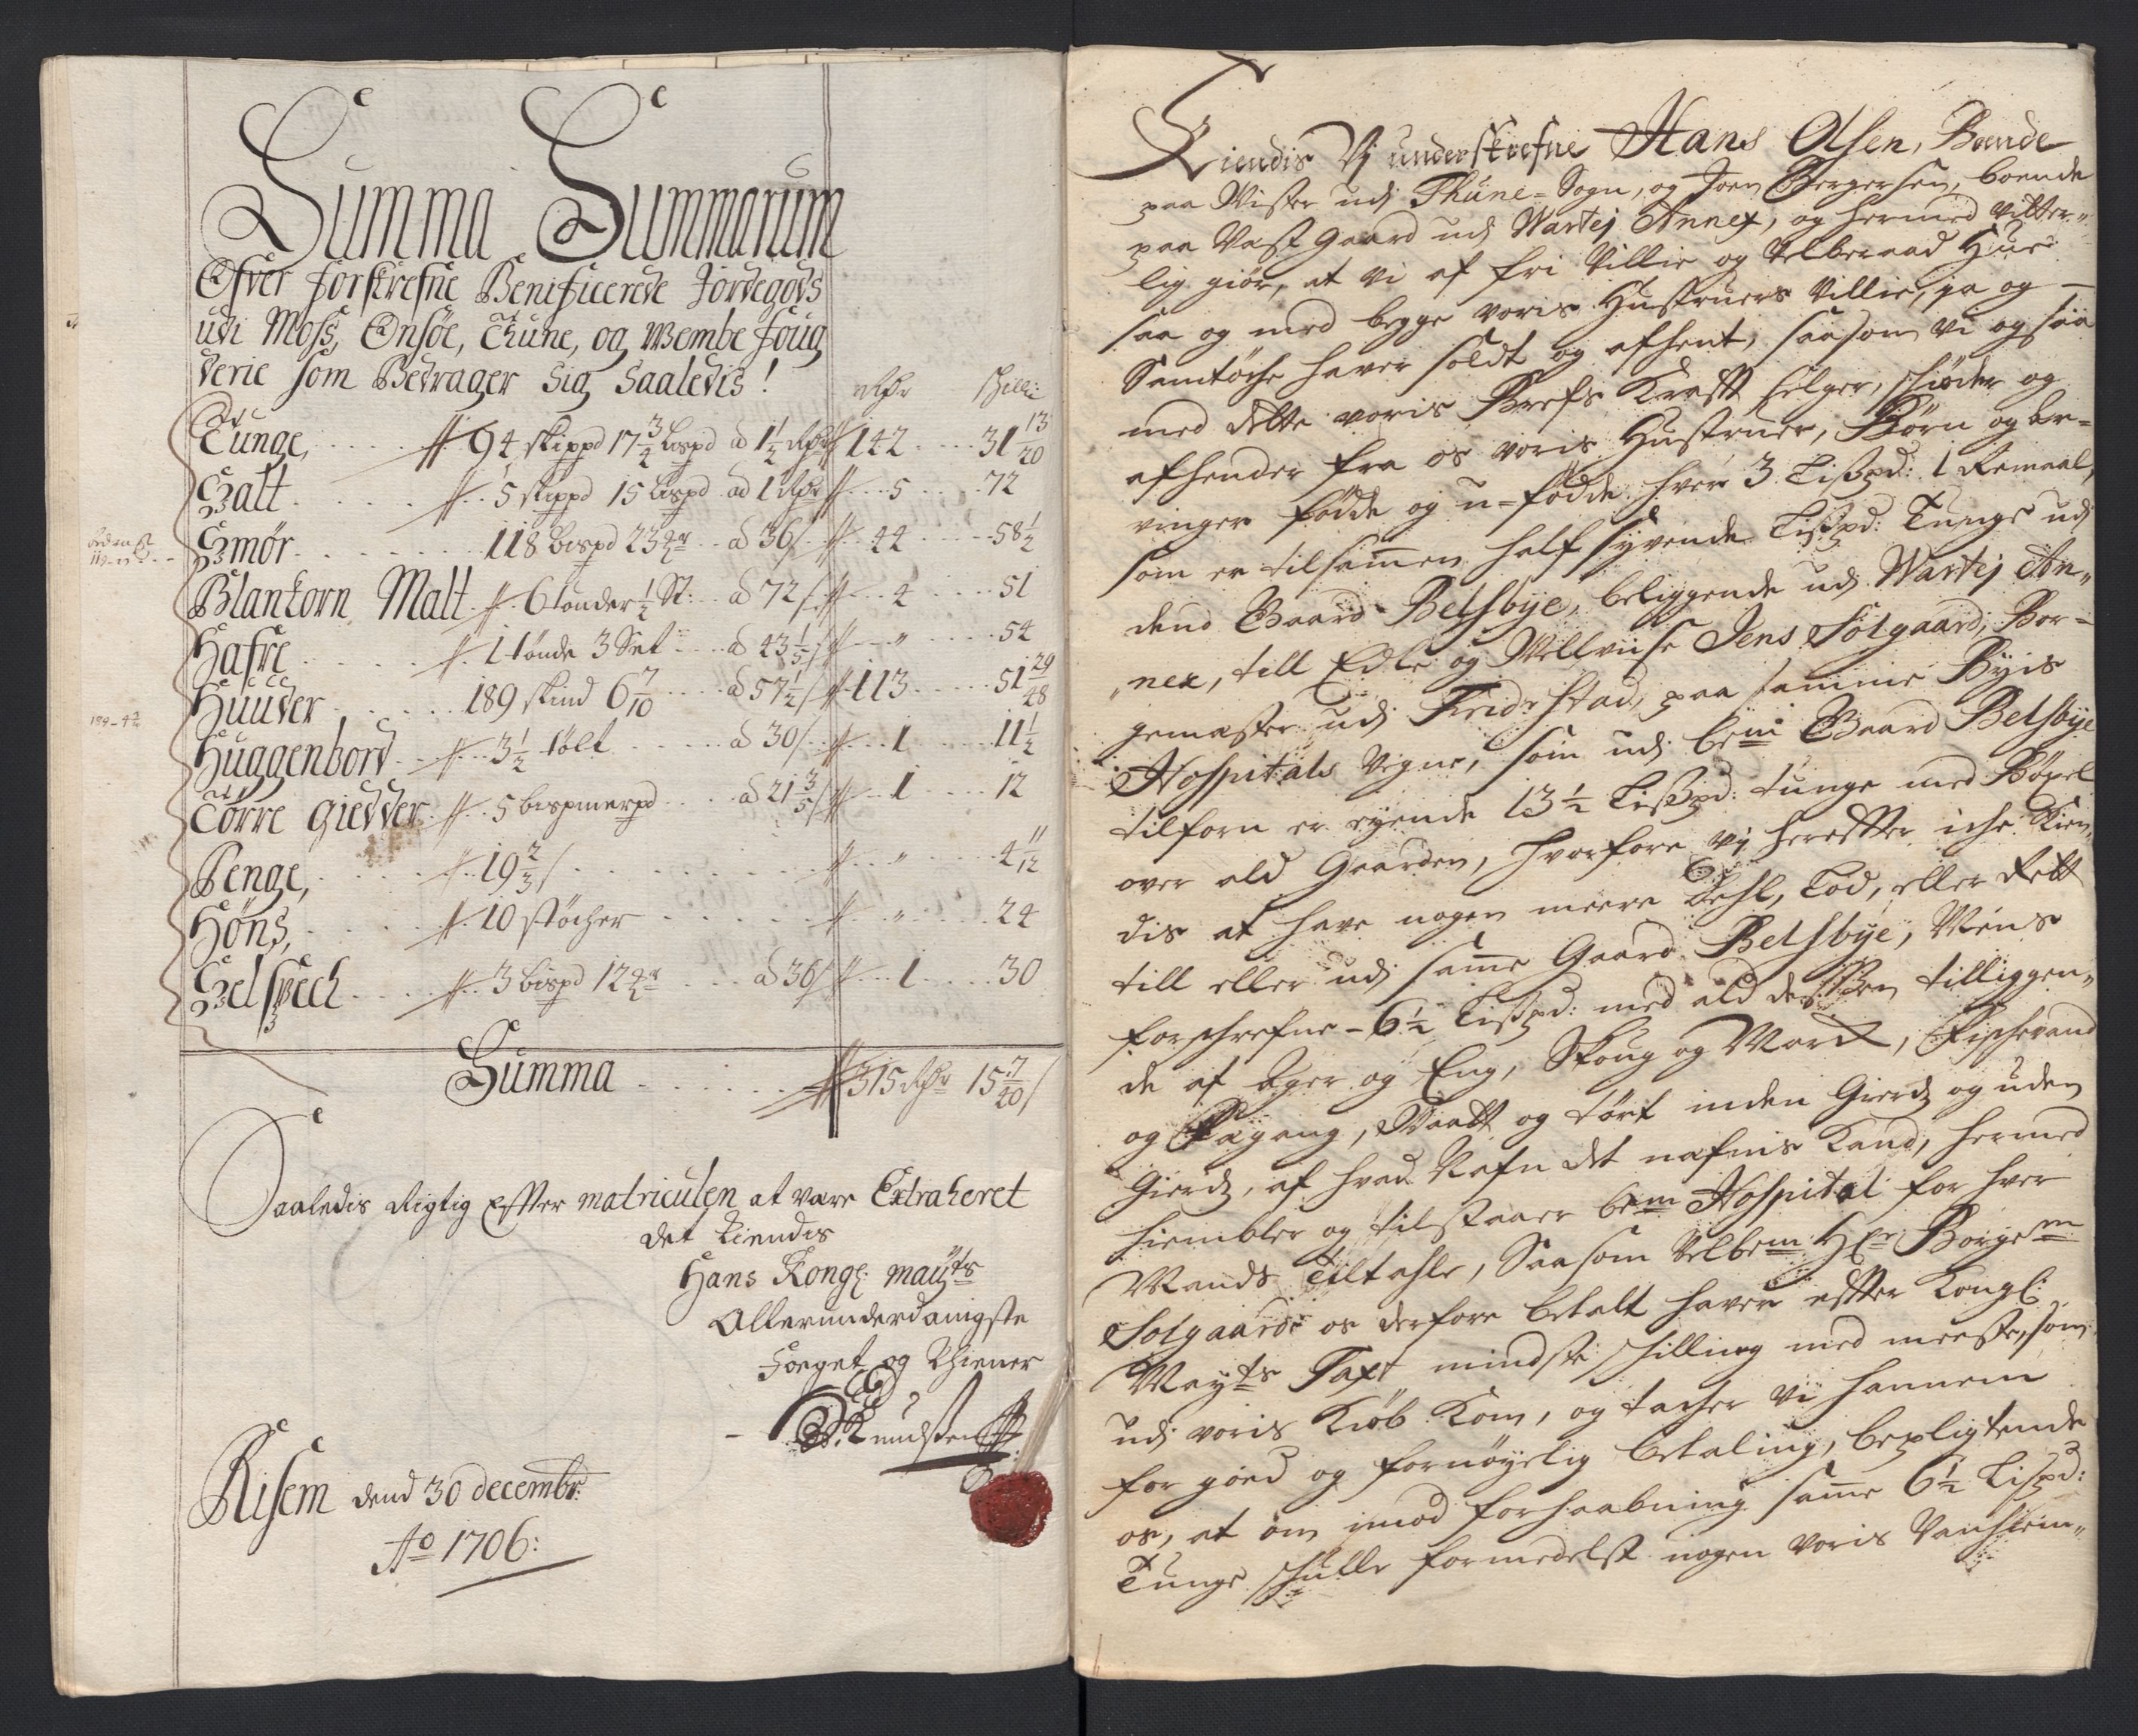 Summa Summarum
Ofver forskrefne Benificerede Jordegods
udi Moss, Onsøe, Thune, og Wembe foug
derie som Bedrager sig saaledis!
Rdr Skill:
Tunge, 94 skippd 17 3/4 bispd ad 1 1/2 Rdr 142 31 13/20
Salt 5 skippd 15 lispd ad 1 Rdr 5 72
Smør 118 bispd 23 4r ad 36 s 44 58 1/2
Blankorn Malt 6 tønder 1/2 St: ad 72 s 4 51
Hafre 1 tønde 3 Set ad 43 1/5 s " 54
Huuder 189 skind 6 7/10 ad 57 1/2 s 113 51 29/48
Huggenbord 3 1/2 tølt ad 30 s 1 11 1/2
Tørre giedder 5 bispmerpd ad 21 3/5 s 1 12
Penge, 19 2/3 s " 4 11/12
Høns, 10 støcher " 24
Selspech 3 bispd 12 4r ad 36 s 1 30
Summa 315 Rdr 15 7/20 s
Saaledis Rigtig Effter matriculen at være Extraheret
det kiendis
Hans Kongl: may:ts
Allerunderdanigste
Foeget og Thiener
Knudsen
Risem dend 30 decembr:
Ao 1706:
Kiendis Vj underskrefne Hans Olsen, Boende
paa Wister udj Thune-Sogn, og Joen Børgersen, boende
paa Vast Gaard udj Wartej Annex, og hermed vitter-
lig giør, at vi af fri Villie og Velberaad Hue
saa og med begge voris Hustruers Villie, ja og
Samtøche haver soldt og afhent, saasom vi og saa
med dette voris Brefs Krafft selger, schiøder og
afhender fra os voris Hustruer, Børn og Ar-
vinger fødde og u-fødde hver 3 Lißpd: 1 Remaal,
som er tilsammen half syvende Lißpd: Tunge udj
dend Gaard Betsbye, beliggende udj Wartej An-
nex, till Edle og Wellviise Jens Solgaard, Bor-
gemester udj Fridrstad, paa samme Byis
Hospitals Vegne, som udj bem Gaard Betsbye
tilforn er eyende 13 1/2 Lißpd: tunge med Bøxel
over ald Gaarden, hvorfore vj hereffter iche Kien-
dis at have nogen meere Dehl, Lod, eller Rett
till eller udj samme Gaard Betsbye, Wens
forschrefne 6 1/2 Lißpd: med ald des Ben tilliggen-
de af Ager og Eng, Skoug og Mark, Fischevand
og Fægang, Vaatt og tørt inden Gierds og uden
Gierds, af hvad Nafn det nafnis Kand, hermed
hiembler og tilstaaer bem Hospital for hver
Mands Tiltahle, Saasom Velbem Hr Borgem
Solgaard os derfore betalt haver effter Kongl:
Mayts Taxt mindste schilling med meeste, som
udj voris Kiøb Kom, og tacher Vi hannem
for goed og fornøyelig betaling, bepligtende
os, at om imod forhaabning samme 6 1/2 Lispd:
Tunge schulle formedelst nogen voris Vanhiem-